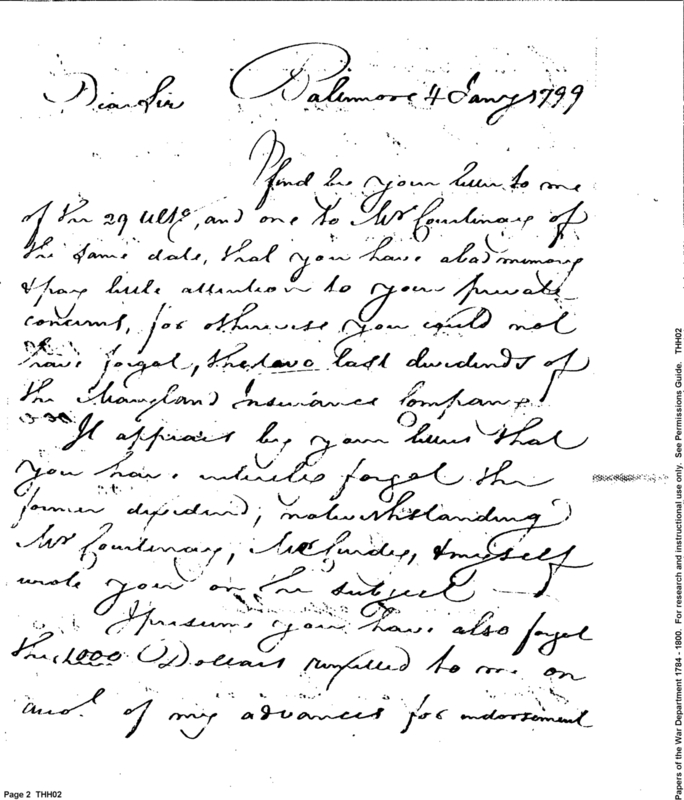 Dear Sir Baltimore 4 Jany 1799
I find by your letter to me
of the 29 Ulto, and one to Mr Courtenay of
the same date, that you have a bad memory
& pay little attention to your private
concerns, for otherwise you could not
have forgot, the two last dividends of
the Maryland Insurance Company
It appears by your letters that
you have entirely forgot the
former dividend, notwithstanding
Mr Courtenay, & myself
wrote you on the subject
I presume you have also forgot
the 1000 Dollars remitted to me on
accot. of my advances for endorsement
Page 2 THH02
Papers of the War Department 1784 - 1800. For research and instructional use only. See Permissions Guide. THH02